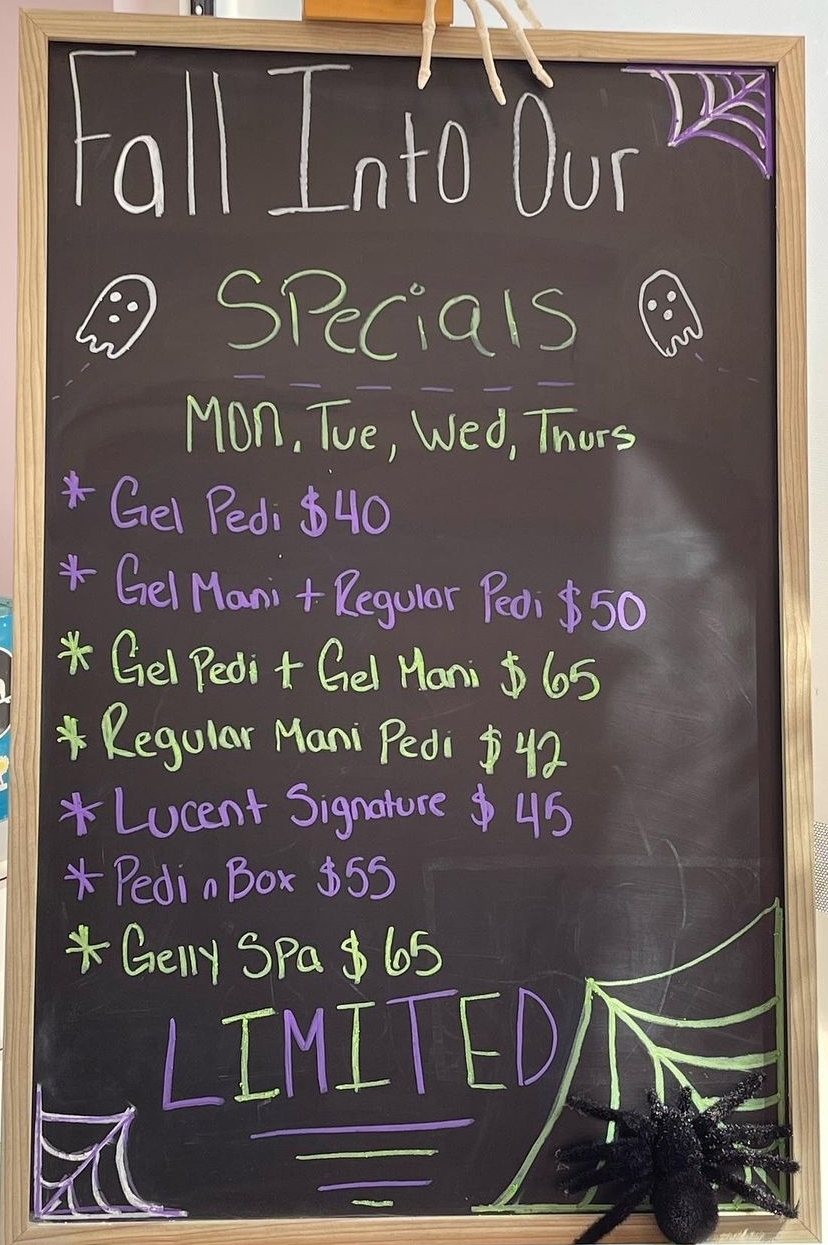 Fall Into Our
SPecials
MON, Tue, Wed, Thurs
* Gel Pedi $40
* Gel Mani + Regular Pedi $50
* Gel Pedi + Gel Mani $65
* Regular Mani Pedi $42
* Lucent Signature $45
* Pedi n Box $55
* Gelly Spa $65
LIMITED